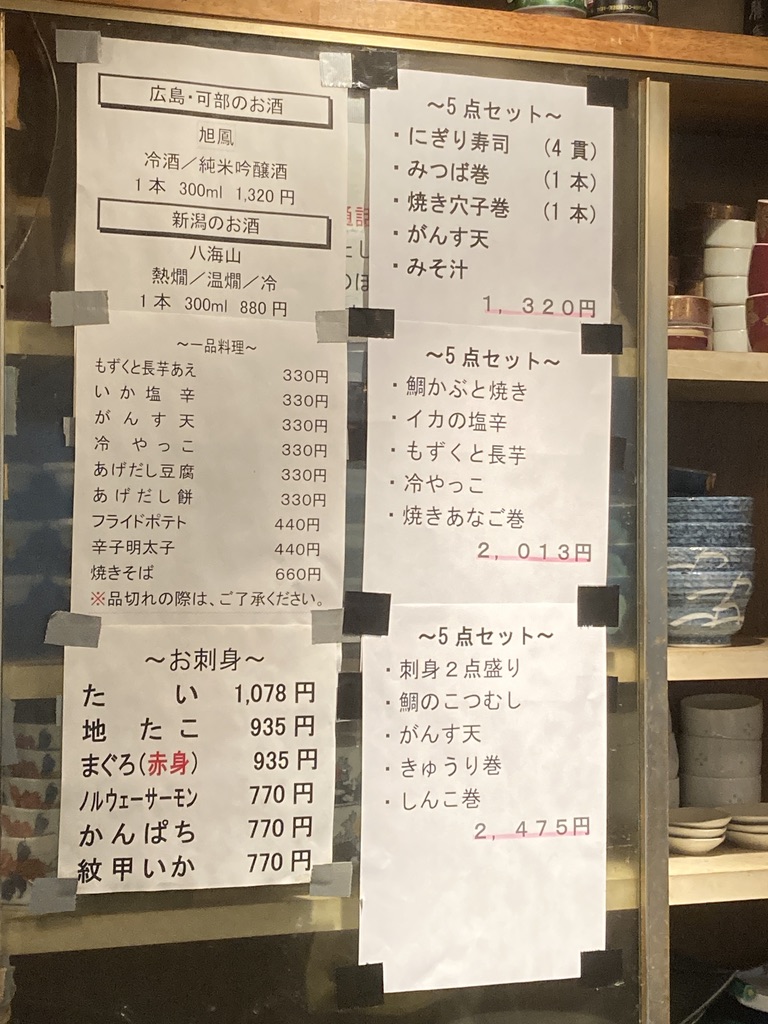 広島・可部のお酒
旭鳳
冷酒／純米吟醸酒
1本 300ml 1,320円
新潟のお酒
八海山
熱燗／温燗／冷
1本 300ml 880円
～一品料理～
もずくと長芋あえ 330円
いか塩辛 330円
がんす天 330円
冷やっこ 330円
あげだし豆腐 330円
あげだし餅 330円
フライドポテト 440円
辛子明太子 440円
焼きそば 660円
※品切れの際は、ご了承ください。
～お刺身～
たい 1,078円
地たこ 935円
まぐろ(赤身) 935円
ノルウェーサーモン 770円
かんぱち 770円
紋甲いか 770円
～5点セット～
・にぎり寿司 (4貫)
・みつば巻 (1本)
・焼き穴子巻 (1本)
・がんす天
・みそ汁
1，320円
～5点セット～
・鯛かぶと焼き
・イカの塩辛
・もずくと長芋
・冷やっこ
・焼きあなご巻
2，013円
～5点セット～
・刺身２点盛り
・鯛のこつむし
・がんす天
・きゅうり巻
・しんこ巻
2，475円